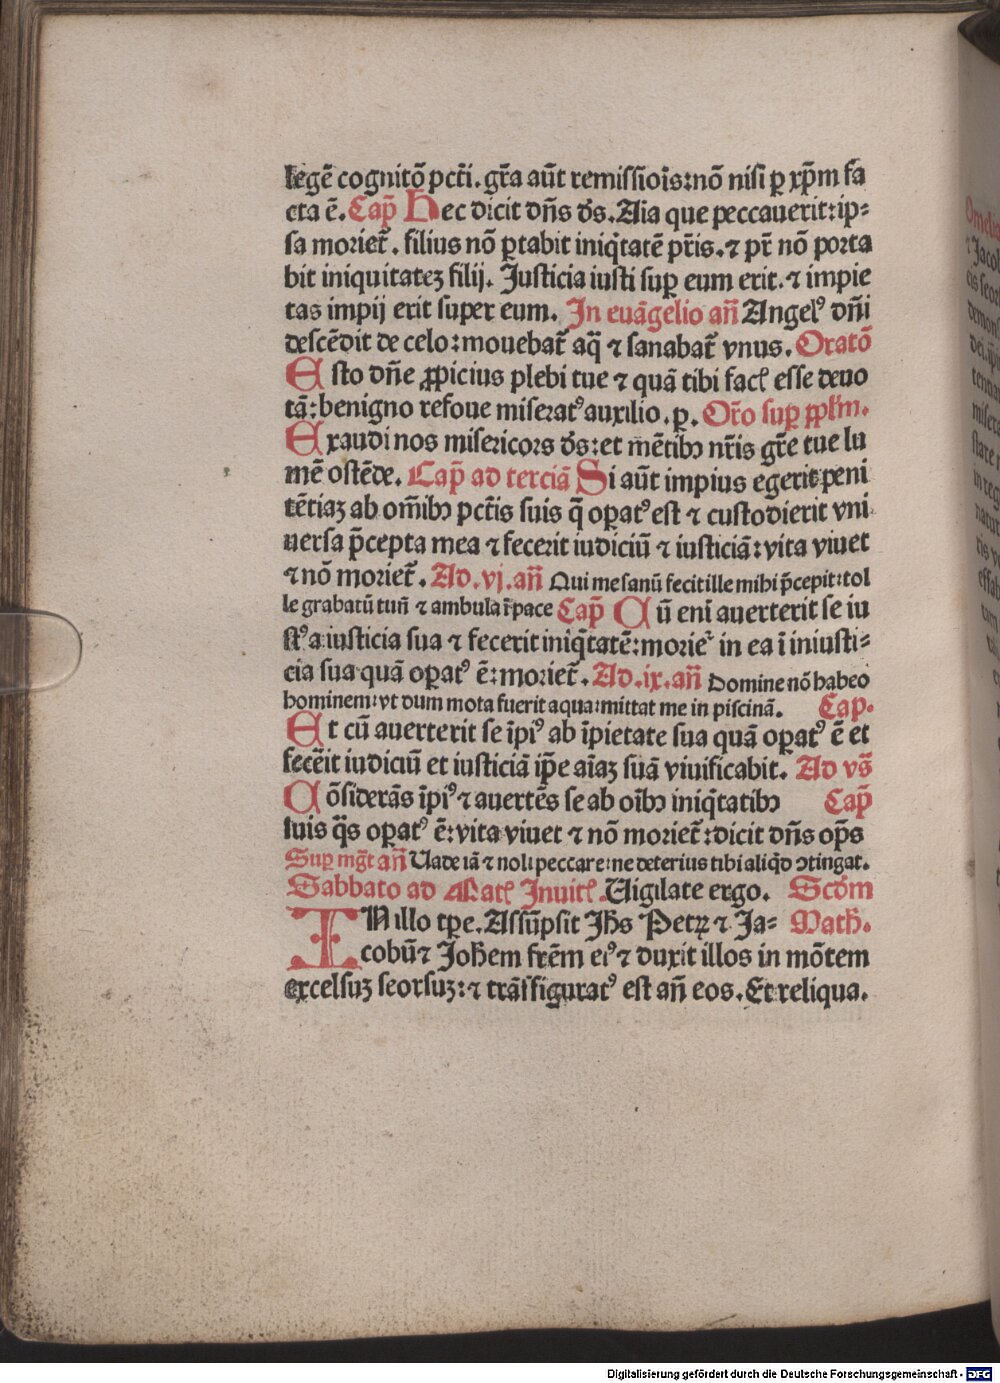 legē cognitō pctī. gr̄a aūt remissiōis: nō nisi ꝑ xp̄m fa
cta ē. Cap̄ Hec dicit dn̄s ds̄. Aia que peccauerit: ip⸗
sa moriet̄. filius nō ꝑtabit iniq̇tatē pr̄is. ⁊ pr̄ nō porta
bit iniquitatez filij. Justicia iusti suꝑ eum erit. ⁊ impie
tas impij erit super eum. In euāgelio an̄ Angelꝰ dn̄i
descēdit de celo: mouebat̄ aq̄ ⁊ sanabat̄ vnus. Oratō
Esto dn̄e ꝓpicius plebi tue ⁊ quā tibi facꝭ esse deuo
tā: benigno refoue miseratꝰ auxilio. ꝑ. Or̄o suꝑ pplm̄.
Exaudi nos misericors ds̄: et mētibꝫ nr̄is gr̄e tue lu
mē ostēde. Cap̄ ad terciā Si aūt impius egerit peni
tētiaz ab om̄ibꝫ pctīs suis q̄ oꝑatꝰ est ⁊ custodierit vni
uersa p̄cepta mea ⁊ fecerit iudiciū ⁊ iusticiā: vita viuet
⁊ nō moriet̄. Ad. vj. an̄ Qui me sanū fecit ille mihi p̄cepit: tol
le grabatū tuū ⁊ ambula ī pace Cap̄ Cū enī auerterit se iu
stꝰ a iusticia sua ⁊ fecerit iniq̇tatē: morieᷣ in ea ī iniusti⸗
cia sua quā oꝑatꝰ ē: moriet̄. Ad. ix. an̄ Domine nō habeo
hominem: vt dum mota fuerit aqua: mittat me in piscinā. Cap.
Et cū auerterit se īpiꝰ ab īpietate sua quā oꝑatꝰ ē et
fecēit iudiciū et iusticiā ip̄e aīaz suā viuificabit. Ad vs̄
Cōsiderās īpiꝰ ⁊ auertēs se ab oībꝫ iniq̇tatibꝫ Cap̄
suis q̄s oꝑatꝰ ē: vita viuet ⁊ nō moriet̄: dicit dn̄s op̄s
Suꝑ mg̅t an̄ Uade iā ⁊ noli peccare: ne deterius tibi aliq̇d ꝯtingat.
Sabbato ad Matꝭ Inuitꝭ. Uigilate ergo. Scdm̄
IN illo tꝑe. Assūpsit Jhs̄ Petrꝝ ⁊ Ja⸗ Math̄.
cobū ⁊ Joh̄em fr̄em eiꝰ ⁊ duxit illos in mōtem
excelsuz seorsuz: ⁊ trāsfiguratꝰ est an̄ eos. Et reliqua.
Digitalisierung gefördert durch die Deutsche Forschungsgemeinschaft - DFG